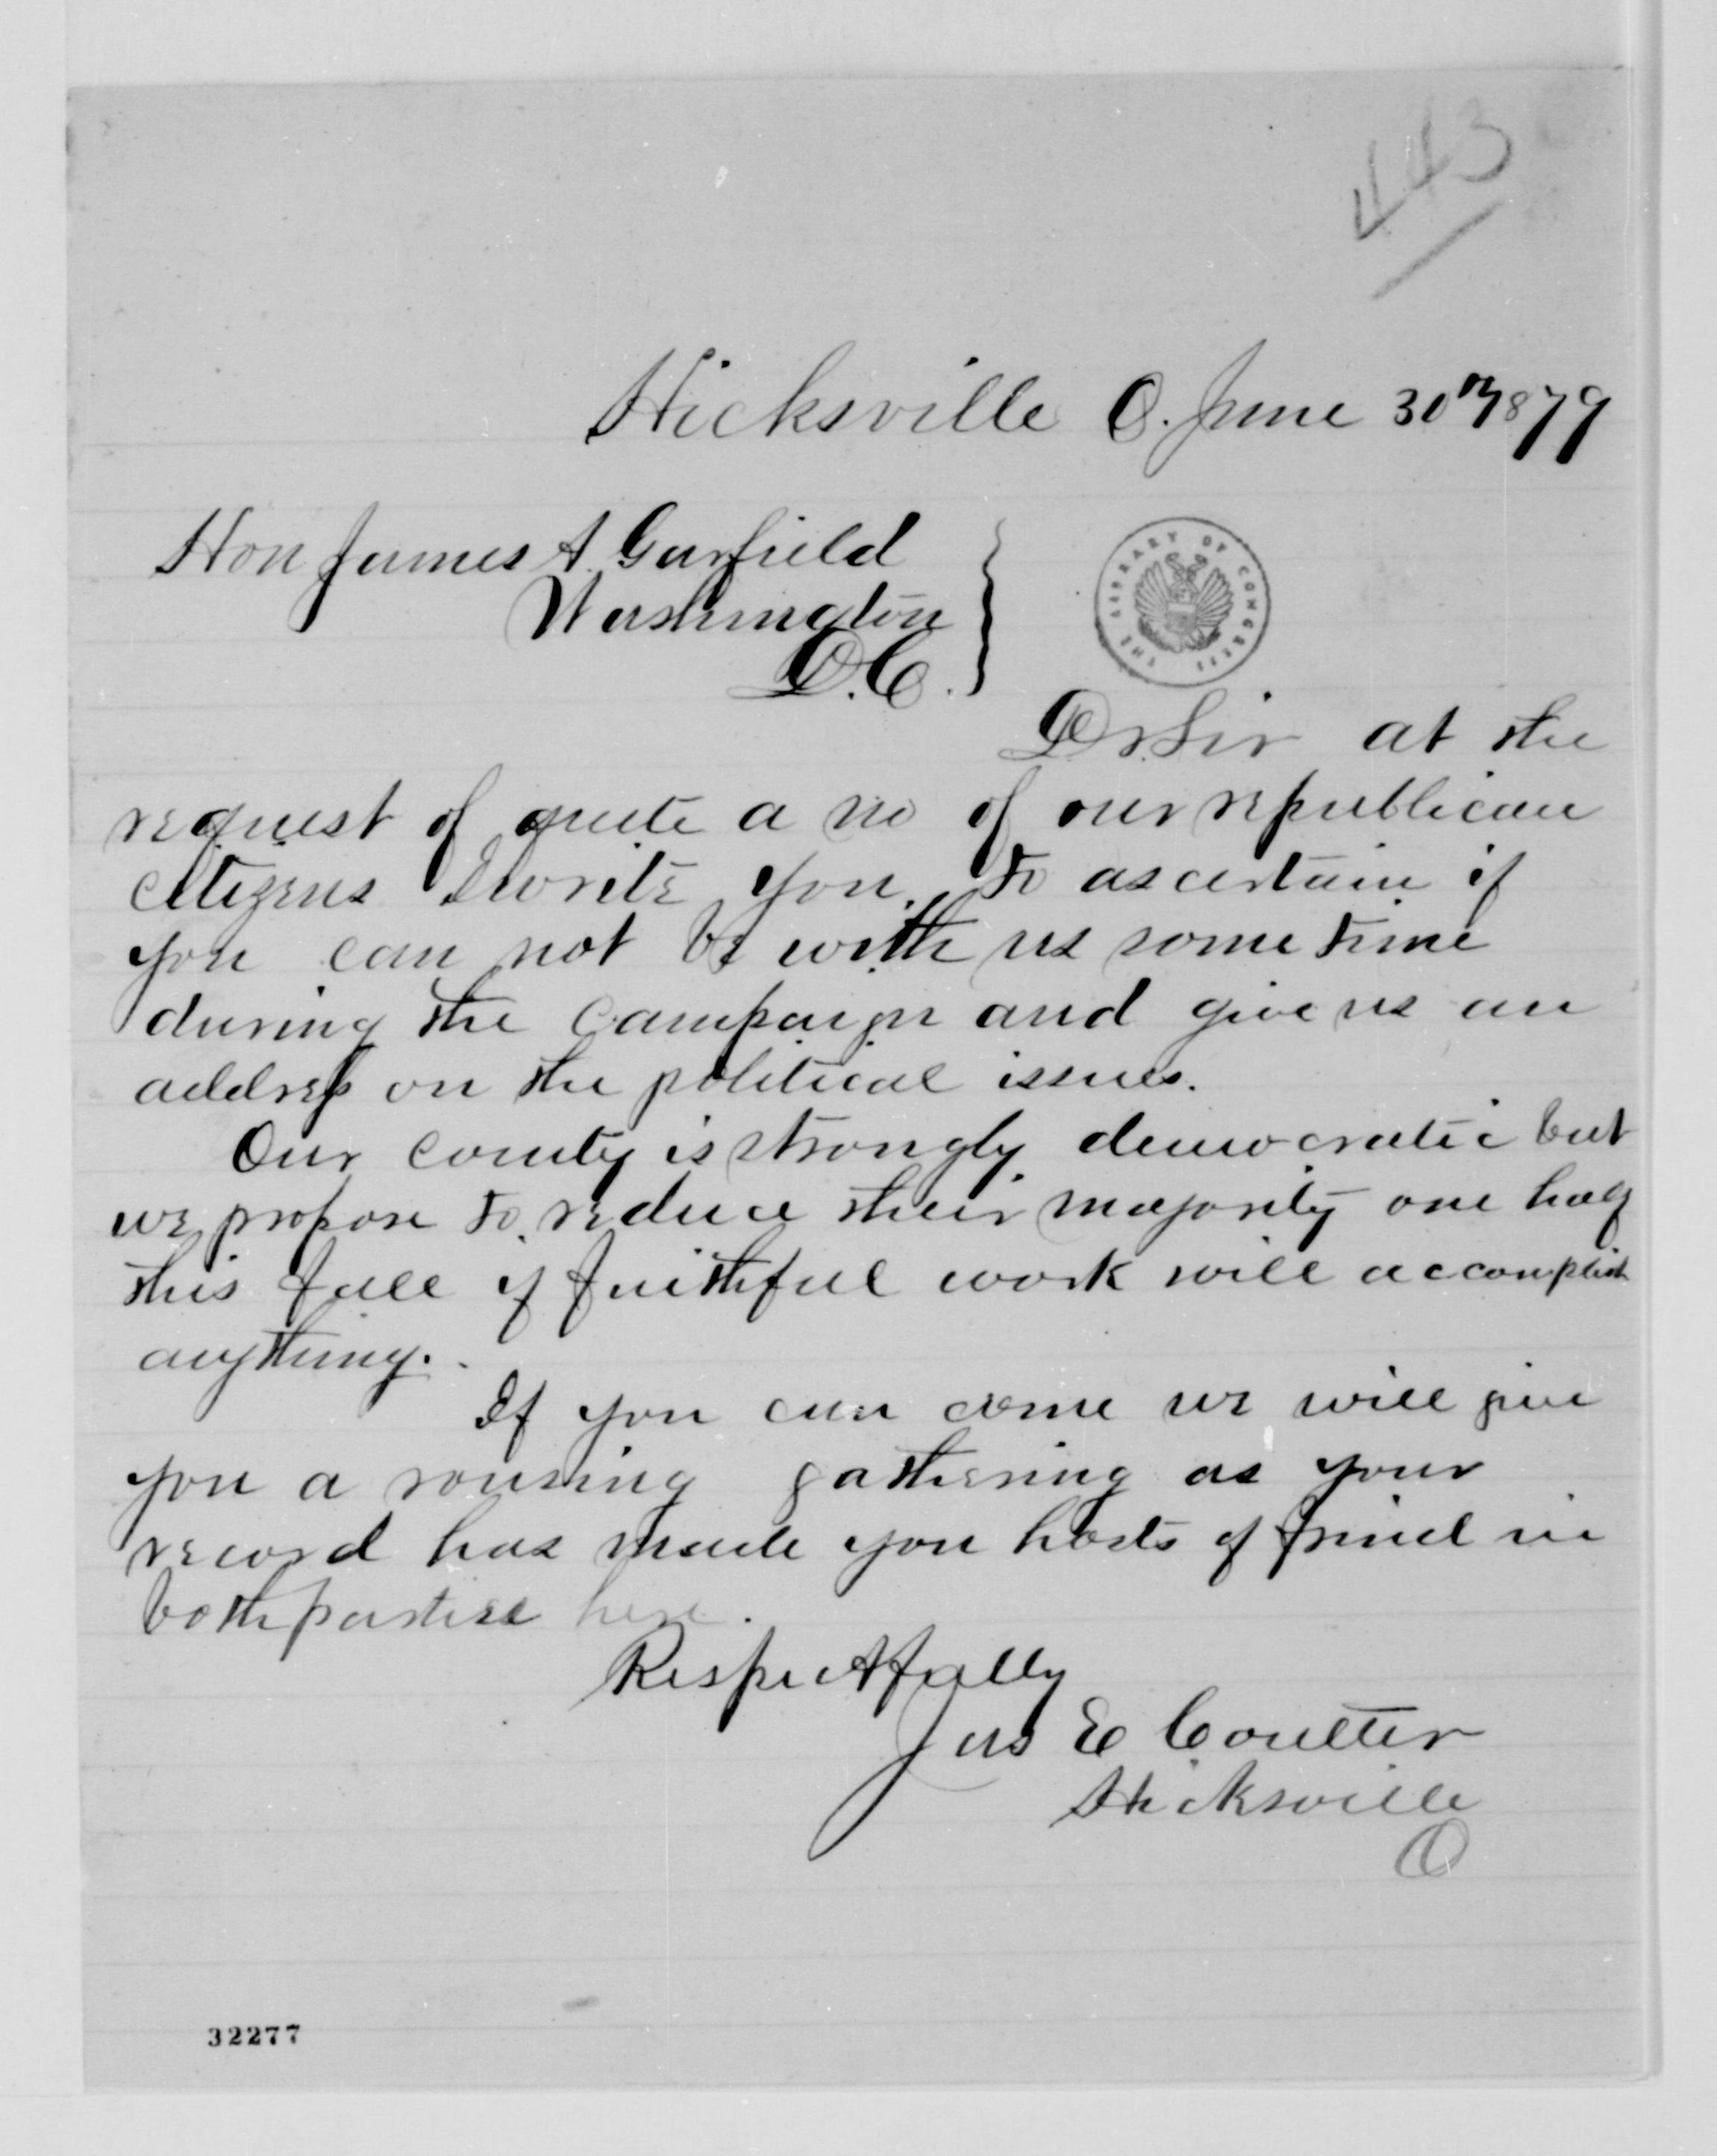 443
Hicksville O. June 30th 1879
Hon James A. Garfield
Washington
D.C.
THE LIBRARY OF CONGRESS
Dr Sir at the
request of quite a no of our republican
citizens I write you, to ascertain if
you can not be with us some time
during the campaign and give us an
address on the political issues.
Our county is strongly democratic but
we propose to reduce their majority one half
this fall if faithful work will accomplish
anything.
If you can come we will give
you a rousing gathering as your
record has made you hosts of friend in
both parties here.
Respectfully
Jas E Coulter
Hicksville
O
32277